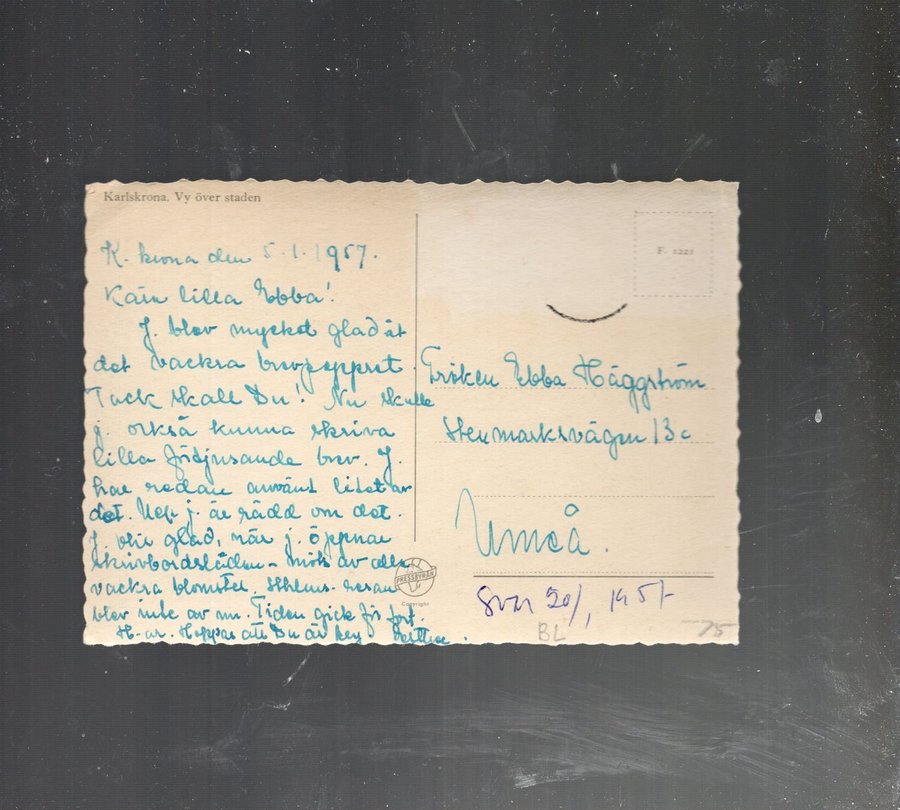 Karlskrona. Vy över staden
K. krona den 5.1.1957.
Kära lilla Ebba!
J. blev mycket glad åt
det vackra brevpappret.
Tack skall Du! Nu skulle
j. också kunna skriva
lilla förtjusande brev. J.
har redan använt litet av
det. Men j. är rädd om det.
J. blir glad, när j. öppnar
skrivbordslådan – möts av alla
vackra blomster. Sthlms. resan
blev inte av nu. Tiden gick för fort.
H. ar. Hoppas att Du är kry
F. 1221
Fröken Ebba Häggström
Stenmarksvägen 13c
Umeå.
PRESSBYRÅN
Copyright
Svar 20/1 1957
BL
75